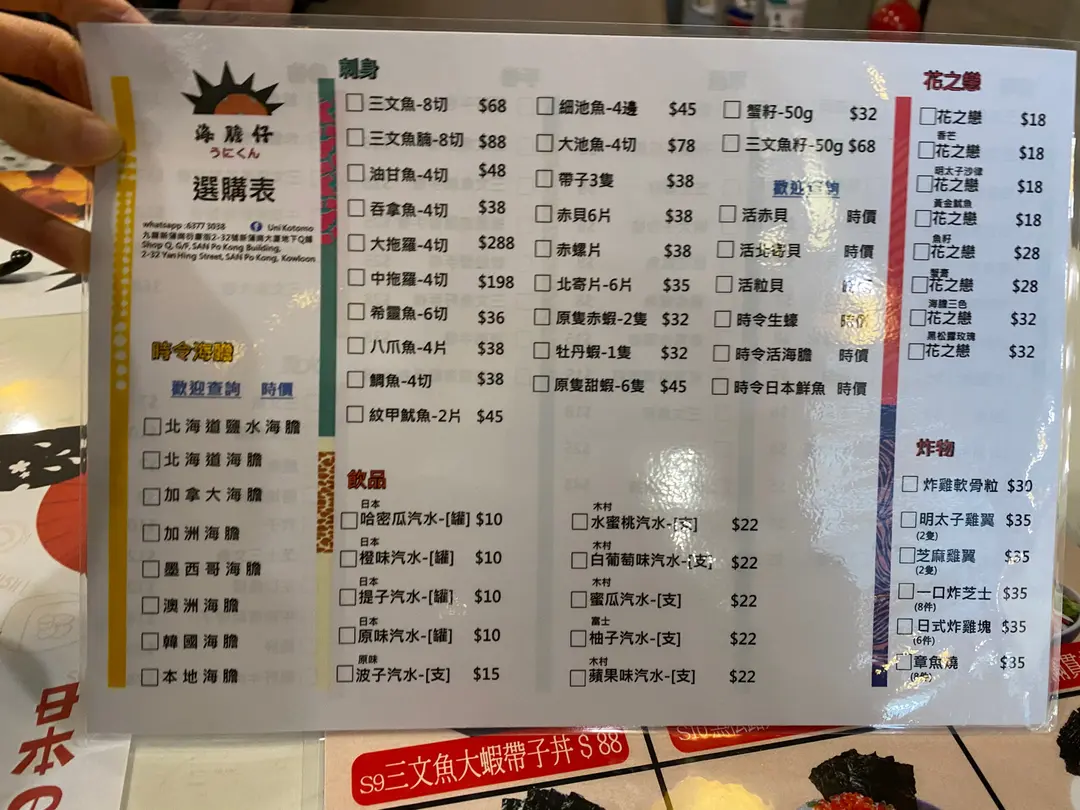 海膽仔
うにくん
選購表
whatsapp :6377 3038
Uni Kotomo
九龍新蒲崗衍慶街2-32號新蒲崗大廈地下Q舖
Shop Q, G/F, SAN Po Kong Building,
2-32 Yan Hing Street, SAN Po Kong, Kowloon
時令海膽
歡迎查詢 時價
北海道鹽水海膽
北海道海膽
加拿大海膽
加洲海膽
墨西哥海膽
澳洲海膽
韓國海膽
本地海膽
刺身
三文魚-8切 $68
三文魚腩-8切 $88
油甘魚-4切 $48
吞拿魚-4切 $38
大拖羅-4切 $288
中拖羅-4切 $198
希靈魚-6切 $36
八爪魚-4片 $38
鯛魚-4切 $38
紋甲魷魚-2片 $45
細池魚-4邊 $45
大池魚-4切 $78
帶子3隻 $38
赤貝6片 $38
赤螺片 $38
北寄片-6片 $35
原隻赤蝦-2隻 $32
牡丹蝦-1隻 $32
原隻甜蝦-6隻 $45
蟹籽-50g $32
三文魚籽-50g $68
歡迎查詢
活赤貝 時價
活北寄貝 時價
活粒貝
時令生蠔 時價
時令活海膽 時價
時令日本鮮魚 時價
飲品
日本
哈密瓜汽水-[罐] $10
日本
橙味汽水-[罐] $10
日本
提子汽水-[罐] $10
日本
原味汽水-[罐] $10
原味
波子汽水-[支] $15
木村
水蜜桃汽水-[支] $22
木村
白葡萄味汽水-[支] $22
木村
蜜瓜汽水-[支] $22
富士
柚子汽水-[支] $22
木村
蘋果味汽水-[支] $22
花之戀
花之戀 $18
香芒
花之戀 $18
明太子沙律
花之戀 $18
黃金魷魚
花之戀 $18
魚籽
花之戀 $28
蟹膏
花之戀 $28
海膽三色
花之戀 $32
黑松露玫瑰
花之戀 $32
炸物
炸雞軟骨粒 $30
明太子雞翼 $35
(2隻)
芝麻雞翼 $35
(2隻)
一口炸芝士 $35
(8件)
日式炸雞塊 $35
(6件)
章魚燒 $35
(8件)
日本
S9三文魚大蝦帶子丼 $ 88